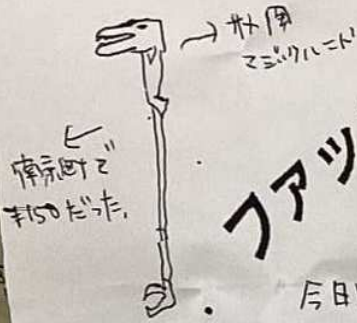 マジックハンド
南京町で
¥150だった。
ファッ
今日